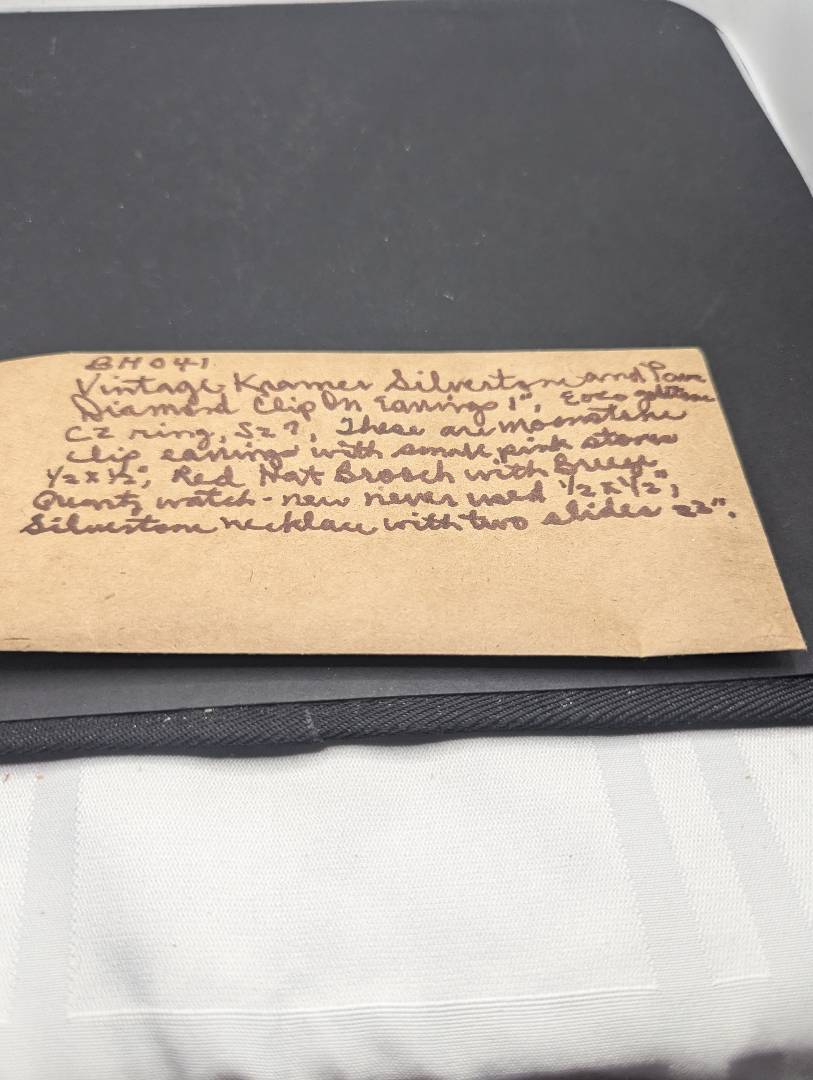 BH041
Vintage Kramer Silvertone and Pave
Diamond Clip On Earrings 1", Evco goldtone
CZ ring, Sz 7, These are Moonstone
clip earrings with small pink stones
1/2 x 1/2", Red Hat Brooch with Breeze
Quartz watch - new never used 1/2 x 1/2",
Silvertone necklace with two slides 22".